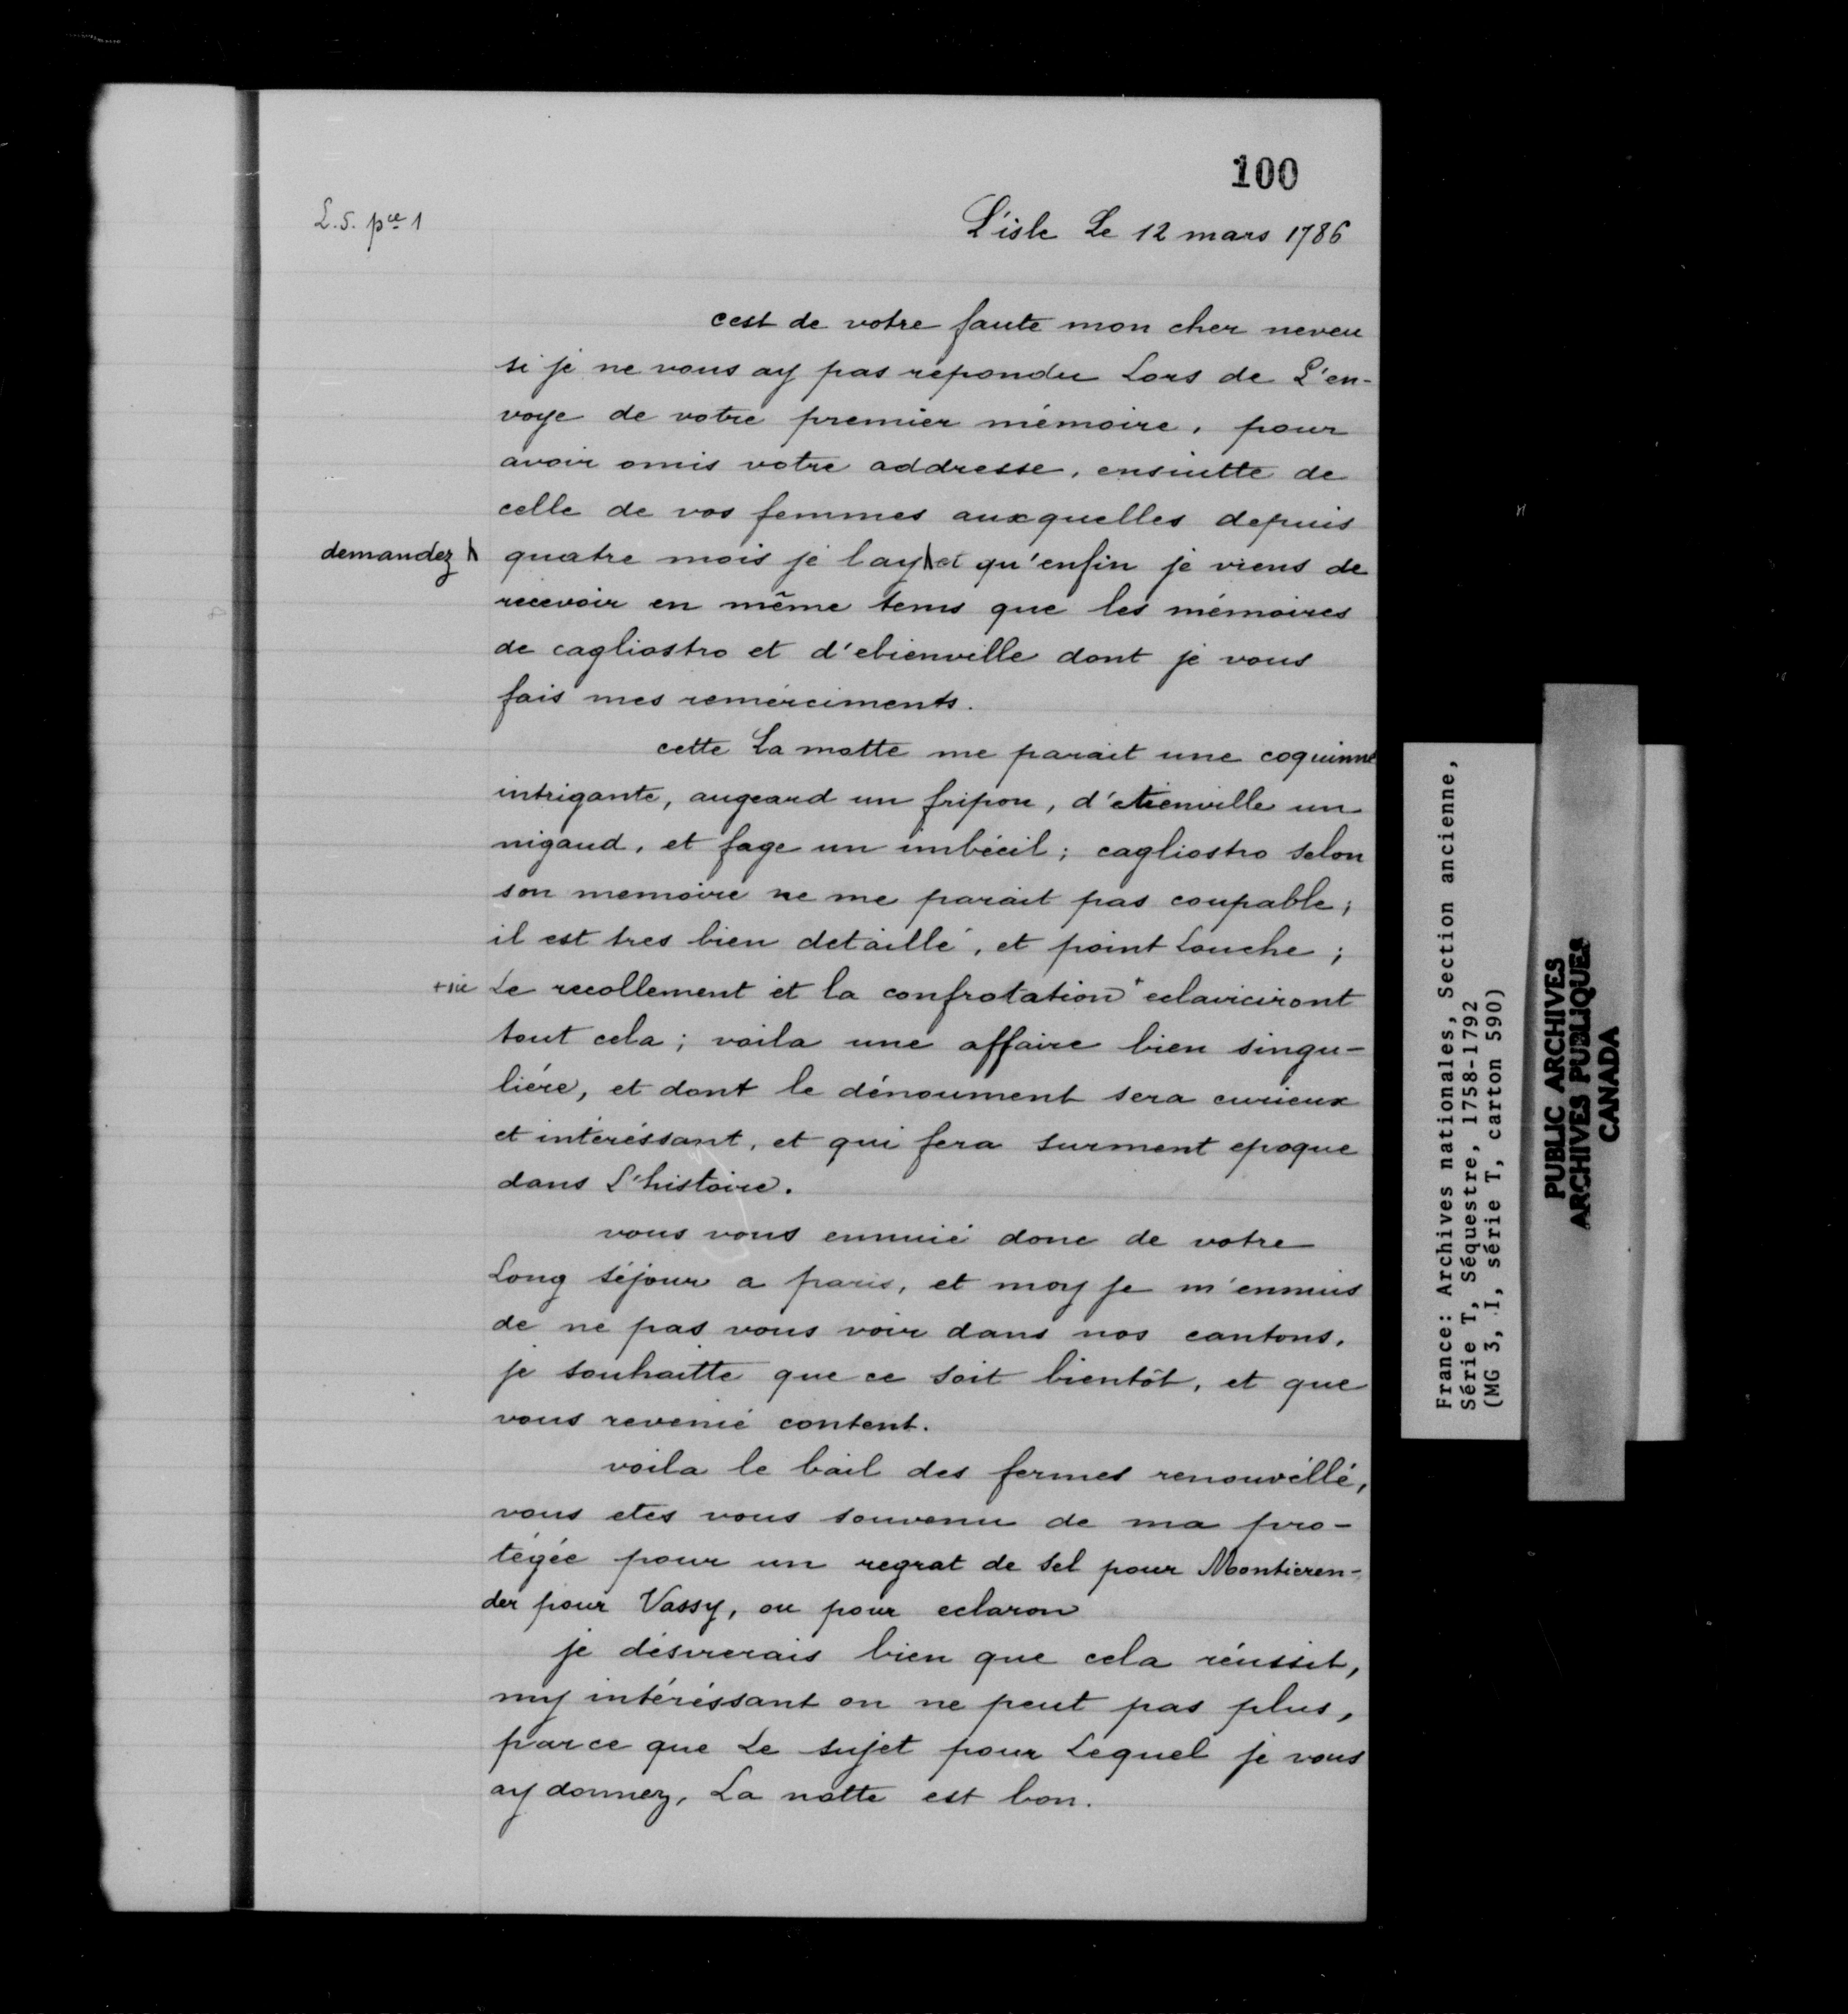 100
L.5. pce 1
L'isle Le 12 mars 1786
cest de votre faute mon cher neveu
si je ne vous ay pas répondu Lors de L'en-
voye de votre premier mémoire, pour
avoir omis votre addresse, ensuitte de
celle de vos femmes auxquelles depuis
demandez \ quatre mois je lay \ et qu'enfin je viens de
recevoir en même tems que les mémoires
de cagliostro et d'ebienville dont je vous
fais mes remérciments.
cette La motte me parait une coquinne
intrigante, augeard un fripon, d'etienville un
nigaud, et fage un imbécil; cagliostro selon
son memoire ne me parait pas coupable;
il est tres bien detaillé, et point Louche;
+ sic Le recollement et la confrotation + eclairciront
tout cela; voila une affaire bien singu-
liére, et dont le dénoument sera curieux
et intéréssant, et qui fera surment epoque
dans L'histoire.
vous vous ennuié donc de votre
Long séjour a paris, et moy je m'ennuis
de ne pas vous voir dans nos cantons,
je souhaitte que ce soit bientôt, et que
vous revenié content.
voila le bail des fermes renouvéllé,
vous etes vous souvenu de ma pro-
tégée pour un regrat de sel pour Montieren-
der pour Vassy, ou pour eclaron
je désirerais bien que cela réussit,
my intéréssant on ne peut pas plus,
parce que Le sujet pour Lequel je vous
ay donnez, La notte est bon.
France: Archives nationales, Section ancienne,
Série T, Séquestre, 1758-1792
(MG 3, I, série T, carton 590)
PUBLIC ARCHIVES
ARCHIVES PUBLIQUES
CANADA